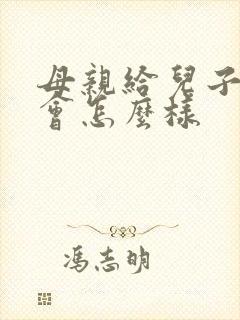 母親給兒子
會怎麼樣
馮志明